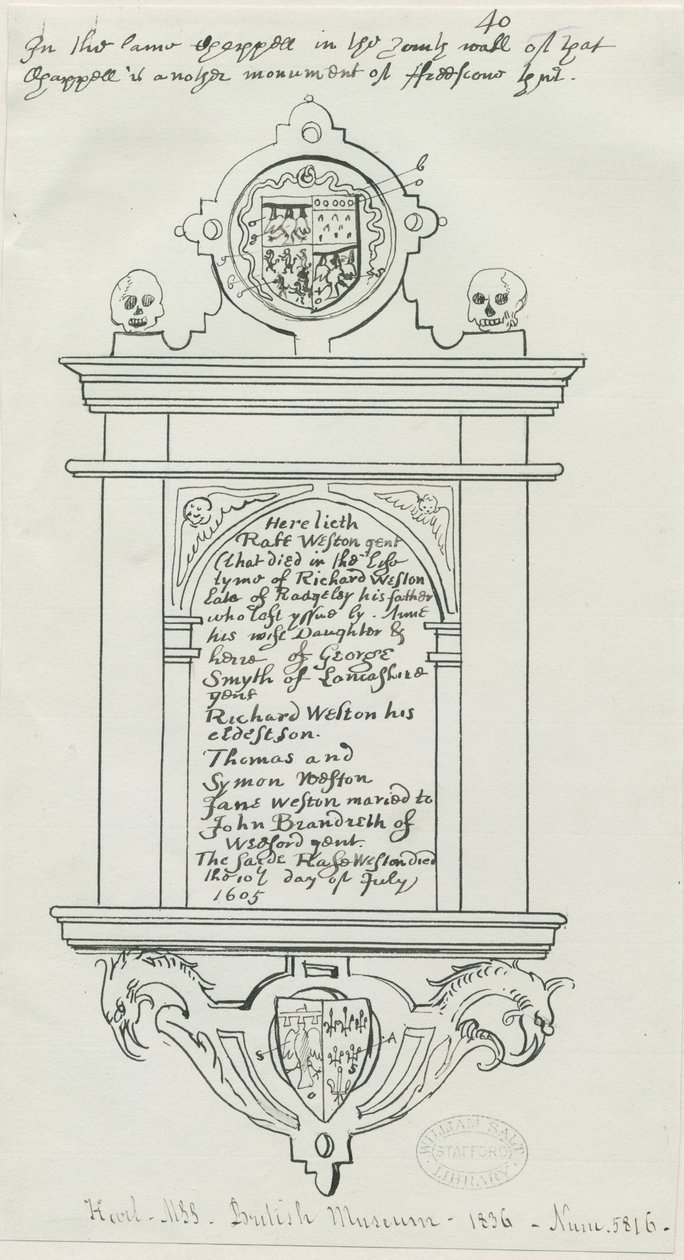 40
In the same Chappell in the South wall of that
Chappell is another monument of freescone
b
o
Here lieth
Rafe Weston gent
(that died in the Life
tyme of Richard Weston
late of Raugeley his father
who left yssue by . Anne
his wife Daughter &
heire of George
Smyth of Lancashire
gent
Richard Weston his
eldest son.
Thomas and
Symon Weston
Jane Weston maried to
John Brandreth of
Weeford gent.
The saide Rafe Weston died
the 10th day of July
1605
S
A
S
WILLIAM SALT
STAFFORD
LIBRARY
Harl. MSS. British Museum - 1836 - Num. 5816 -